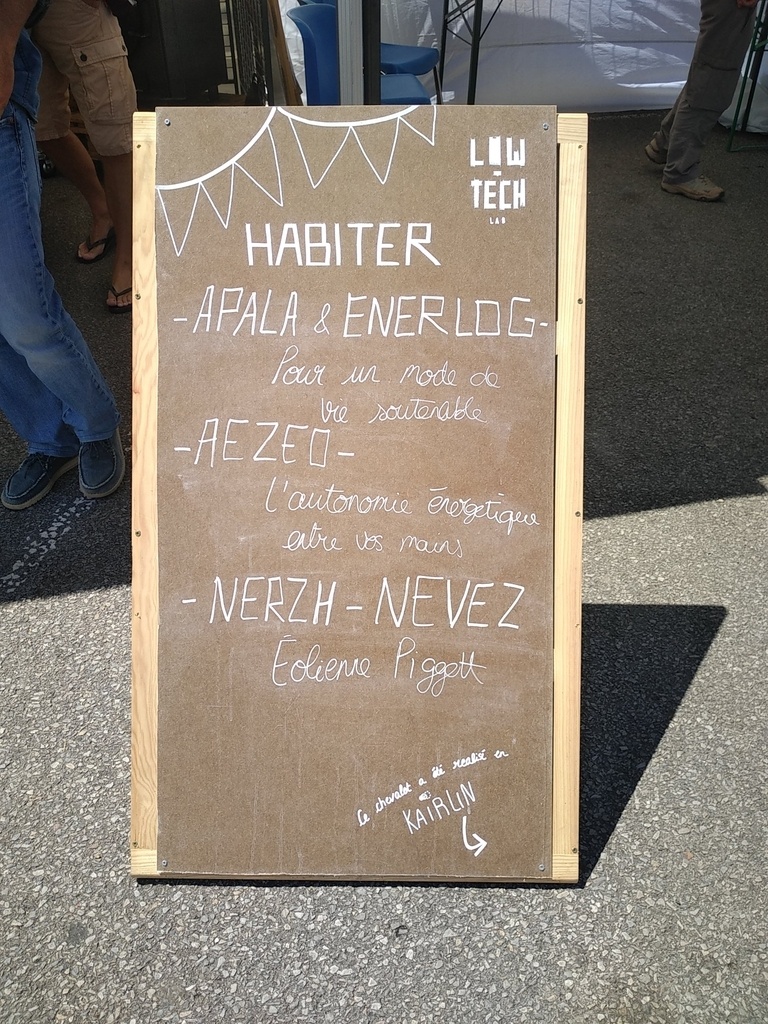 LOW
-
TECH
LAB
HABITER
-APALA & ENERLOG-
Pour un mode de
vie soutenable
-AEZEO-
L'autonomie énergetique
entre vos mains
-NERZH-NEVEZ
Éolienne Piggott
Ce chevalet a été realisé en
KAIRLIN